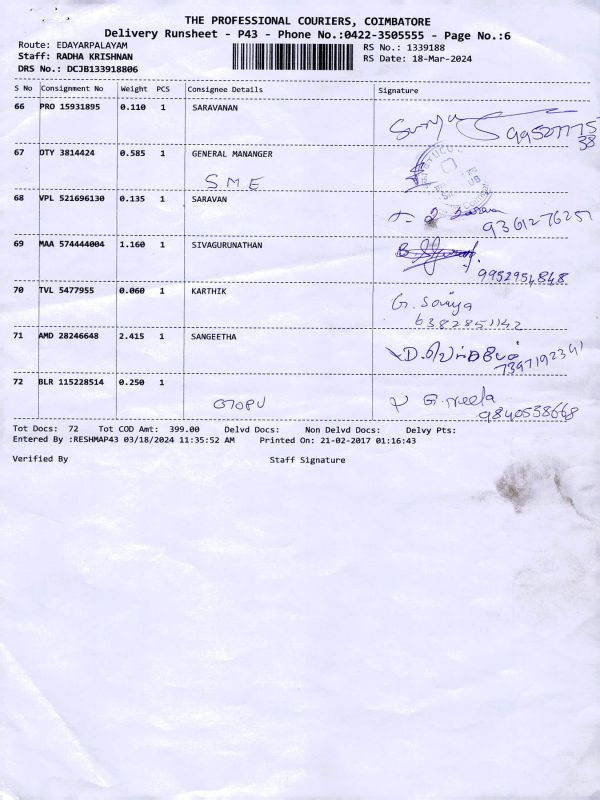 THE PROFESSIONAL COURIERS, COIMBATORE
Delivery Runsheet - P43 - Phone No.:0422-3505555 - Page No.:6
Route: EDAYARPALAYAM RS No.: 1339188
Staff: RADHA KRISHNAN RS Date: 18-Mar-2024
DRS No.: DCJB133918806
S No Consignment No Weight PCS Consignee Details Signature
66 PRO 15931895 0.110 1 SARAVANAN
Surya
38
67 DTY 3814424 0.585 1 GENERAL MANANGER
SME
68 VPL 521696130 0.135 1 SARAVAN
9361276257
69 MAA 574444004 1.160 1 SIVAGURUNATHAN
9952954848
70 TVL 5477955 0.060 1 KARTHIK
G. Soniya
6382851142
71 AMD 28246648 2.415 1 SANGEETHA
7397192341
72 BLR 115228514 0.250 1
GOPU G. Neela
9840538668
Tot Docs: 72 Tot COD Amt: 399.00 Delvd Docs: Non Delvd Docs: Delvy Pts:
Entered By :RESHMAP43 03/18/2024 11:35:52 AM Printed On: 21-02-2017 01:16:43
Verified By Staff Signature